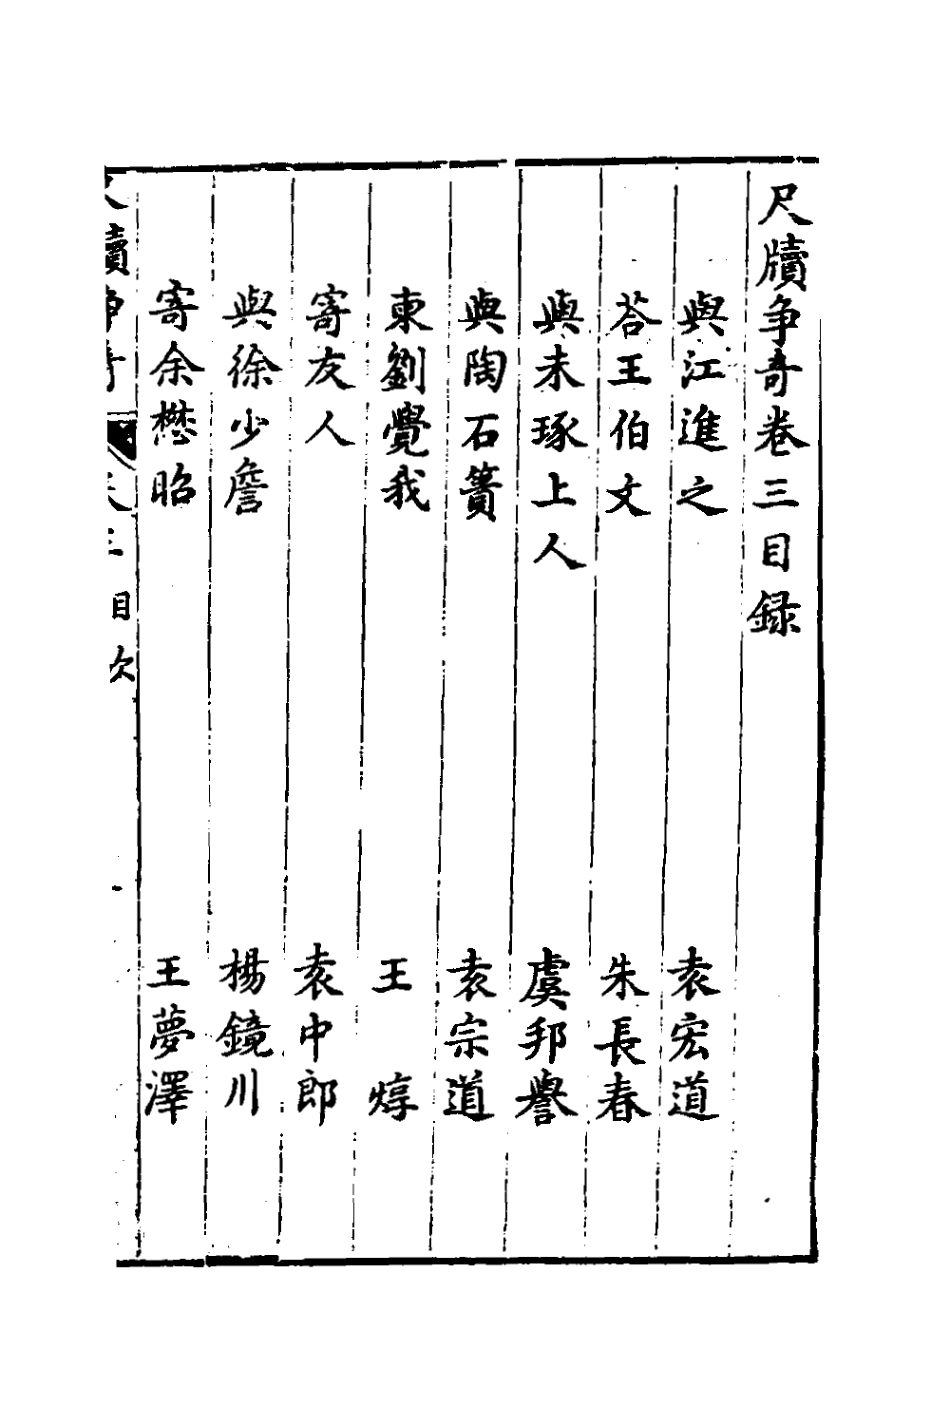 尺牘争奇卷三目録
與江進之 袁宏道
荅王伯文 朱長春
與未琢上人 虞邦譽
與陶石簣 袁宗道
柬劉覺我 王焞
寄友人 袁中郎
與徐少詹 楊鏡川
寄余懋昭 王夢澤
尺牘争奇 卷三目次 一